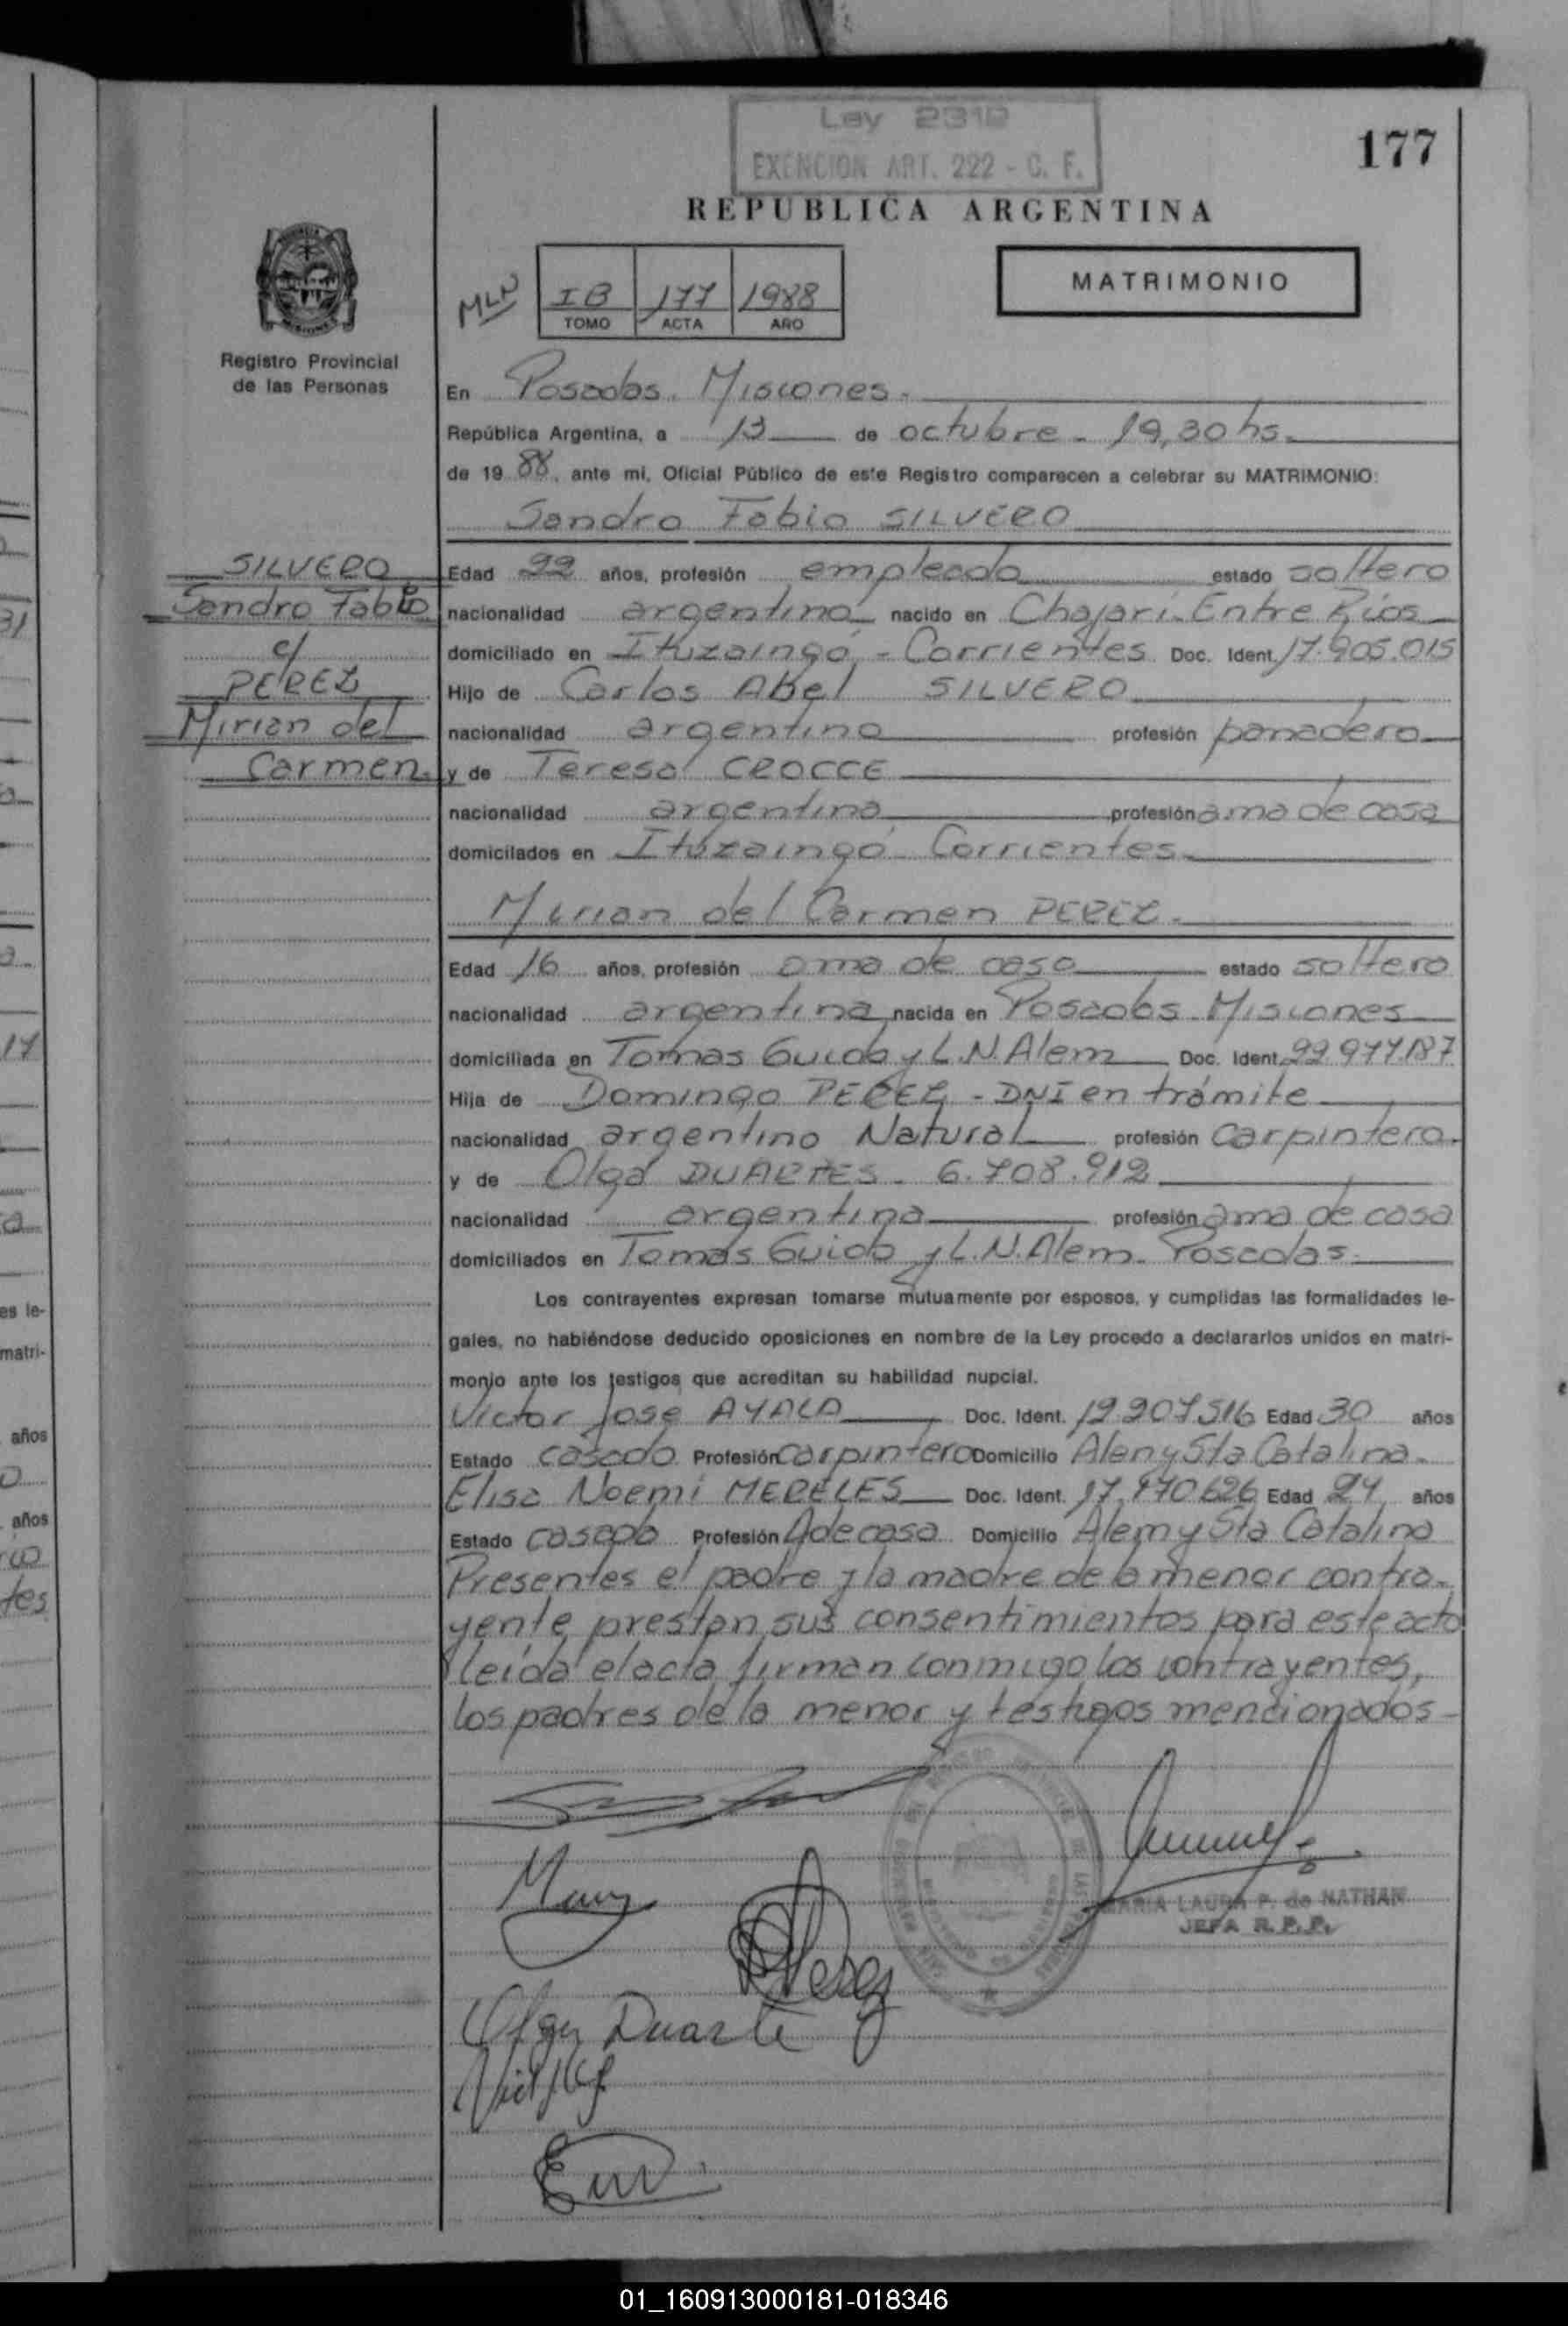 Ley 2310
EXENCION ART. 222 - C. F.
177
REPUBLICA ARGENTINA
MLN
IB 177 1988
TOMO ACTA AÑO
MATRIMONIO
Registro Provincial
de las Personas
En Posadas. Misiones.
República Argentina, a 13 de octubre - 19,30 hs.
de 19 88, ante mi, Oficial Público de este Registro comparecen a celebrar su MATRIMONIO:
Sandro Fabio SILVERO
SILVERO
Sandro Fabio
c/
PEREZ
Mirian del
Carmen.
Edad 22 años, profesión empleado estado soltero
nacionalidad argentino nacido en Chajarí - Entre Ríos
domiciliado en Ituzaingó - Corrientes Doc. Ident. 17.905.015
Hijo de Carlos Abel SILVERO
nacionalidad argentino profesión panadero
y de Teresa CROCCE
nacionalidad argentina profesión ama de casa
domicilados en Ituzaingó Corrientes
Mirian del Carmen PEREZ.
Edad 16 años, profesión ama de casa estado soltera
nacionalidad argentina nacida en Posadas - Misiones
domiciliada en Tomas Guido y L.N. Alem Doc. Ident. 22.977.187
Hija de Domingo PEREZ - DNI en trámite
nacionalidad argentino Natural profesión carpintero.
y de Olga DUARTES - 6.708.912
nacionalidad argentina profesión ama de casa
domiciliados en Tomas Guido y L.N. Alem - Posadas
Los contrayentes expresan tomarse mutuamente por esposos, y cumplidas las formalidades le-
gales, no habiéndose deducido oposiciones en nombre de la Ley procedo a declararlos unidos en matri-
monio ante los testigos que acreditan su habilidad nupcial.
Victor José AYALA Doc. Ident. 12.907.516 Edad 30 años
Estado casado Profesión carpintero Domicilio Alem y Sta Catalina.
Elisa Noemi MERELES Doc. Ident. 17.170.626 Edad 24 años
Estado casada Profesión A de casa Domicilio Alem y Sta Catalina
Presentes el padre y la madre de la menor contra-
yente prestan sus consentimientos para este acto
leída el acta, firman conmigo los contrayentes,
los padres de la menor y testigos mencionados -
MARIA LAURA P. de NATHAN
JEFA R.P.P.
Perez
Olga Duarte
01_160913000181-018346